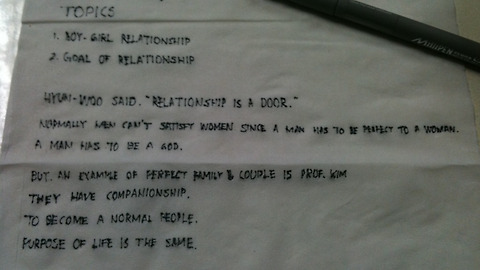 TOPICS
1. BOY-GIRL RELATIONSHIP
2. GOAL OF RELATIONSHIP
HYUN-WOO SAID. "RELATIONSHIP IS A DOOR."
NORMALLY MEN CAN'T SATISFY WOMEN SINCE A MAN HAS TO BE PERFECT TO A WOMAN.
A MAN HAS TO BE A GOD.
BUT. AN EXAMPLE OF PERFECT FAMILY & COUPLE IS PROF. KIM
THEY HAVE COMPANIONSHIP.
TO BECOME A NORMAL PEOPLE.
PURPOSE OF LIFE IS THE SAME.